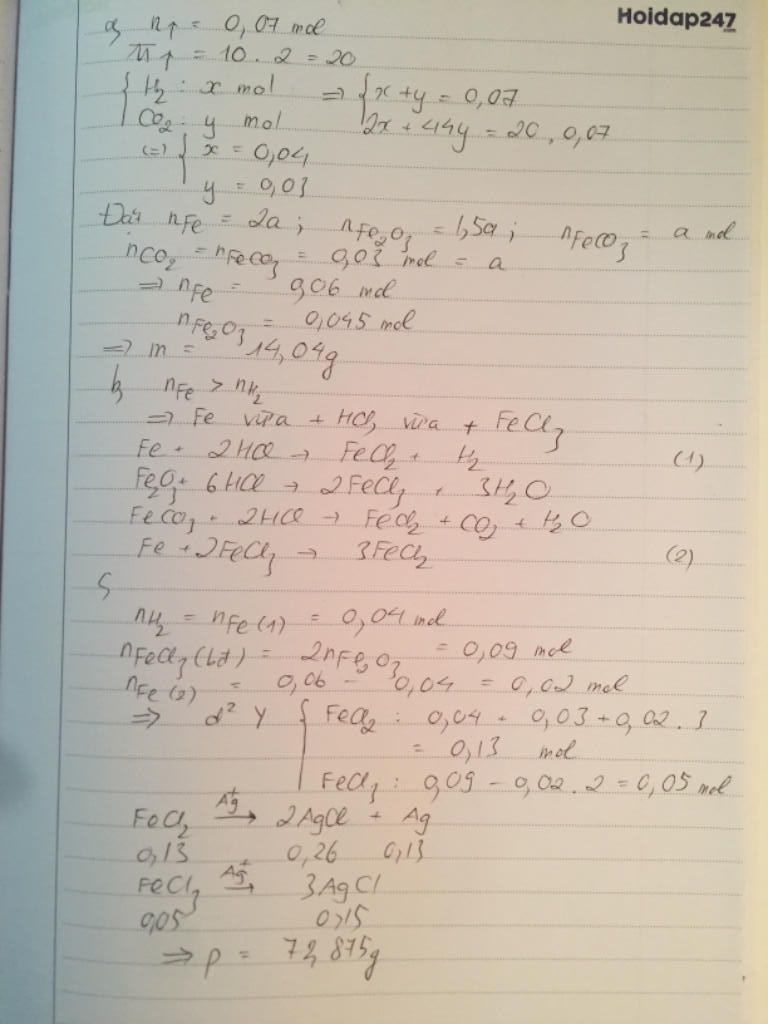 Hoidap247
.com
a) n↑ = 0,07 mol
M↑ = 10 . 2 = 20
{ H₂ : x mol ⇒ { x + y = 0,07
CO₂ : y mol 2x + 44y = 20 . 0,07
(=) { x = 0,04
y = 0,03
Đặt nFe = 2a ; nFe₂O₃ = 1,5a ; nFeCO₃ = a mol
nCO₂ = nFeCO₃ = 0,03 mol = a
⇒ nFe = 0,06 mol
nFe₂O₃ = 0,045 mol
⇒ m = 14,04g
b) nFe > nH₂
⇒ Fe vừa + HCl, vừa + FeCl₃
Fe + 2HCl → FeCl₂ + H₂ (1)
Fe₂O₃ + 6HCl → 2FeCl₃ + 3H₂O
FeCO₃ + 2HCl → FeCl₂ + CO₂ + H₂O
Fe + 2FeCl₃ → 3FeCl₂ (2)
c)
nH₂ = nFe (1) = 0,04 mol
nFeCl₃ (bđ) = 2nFe₂O₃ = 0,09 mol
nFe (2) = 0,06 - 0,04 = 0,02 mol
⇒ d² Y { FeCl₂ : 0,04 + 0,03 + 0,02 . 3
= 0,13 mol
FeCl₃ : 0,09 - 0,02 . 2 = 0,05 mol
FeCl₂ Ag⁺→ 2AgCl + Ag
0,13 0,26 0,13
FeCl₃ Ag⁺→ 3AgCl
0,05 0,15
⇒ p = 72,875g